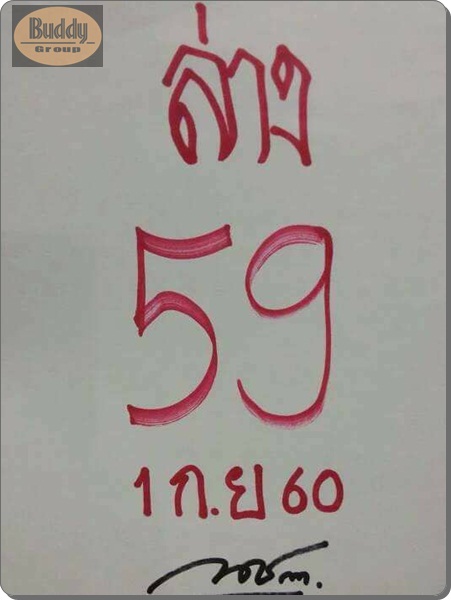 Buddy
Group
ล่าง
59
1 ก.ย 60